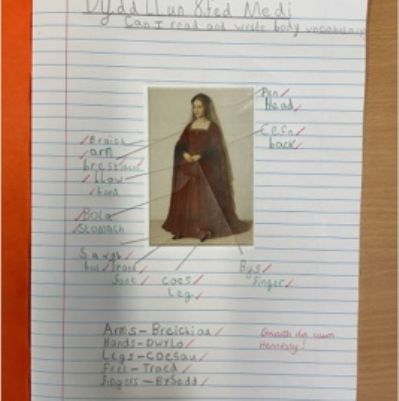 Dydd Llun 8fed Medi
Can I read and write body vocabulary
Pen
Head
Cefn
back
Braich
arm
Llaw
hand
Bola
Stomach
Sawdl
troed
foot
coes
Leg
Bys
finger
Arms - Breichiau
Hands - Dwylo
Legs - Coesau
Feet - Traed
fingers - Bysedd